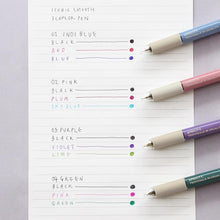 ICONIC SMOOTH
3COLOR PEN
01 INDI BLUE
BLACK
RED
BLUE
02 PINK
BLACK
PLUM
SKY BLUE
03 PURPLE
BLACK
VIOLET
LIME
04 GREEN
BLACK
PINK
GREEN